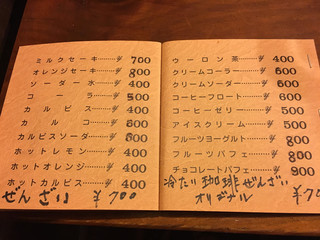 ミルクセーキ……¥ 700
オレンジセーキ……¥ 800
ソーダー水……¥ 400
コーラ……¥ 500
カルピス……¥ 400
カルコ……¥ 500
カルピスソーダ……¥ 500
ホットレモン……¥ 400
ホットオレンジ……¥ 400
ホットカルピス……¥ 400
ぜんざい ¥700
ウーロン茶……¥ 400
クリームコーラ……¥ 600
クリームソーダー……¥ 600
コーヒーフロート……¥ 600
コーヒーゼリー……¥ 500
アイスクリーム……¥ 500
フルーツヨーグルト……¥ 800
フルーツパフェ……¥ 800
チョコレートパフェ……¥ 800
冷たい珈琲ぜんざい
オリジナル ¥7